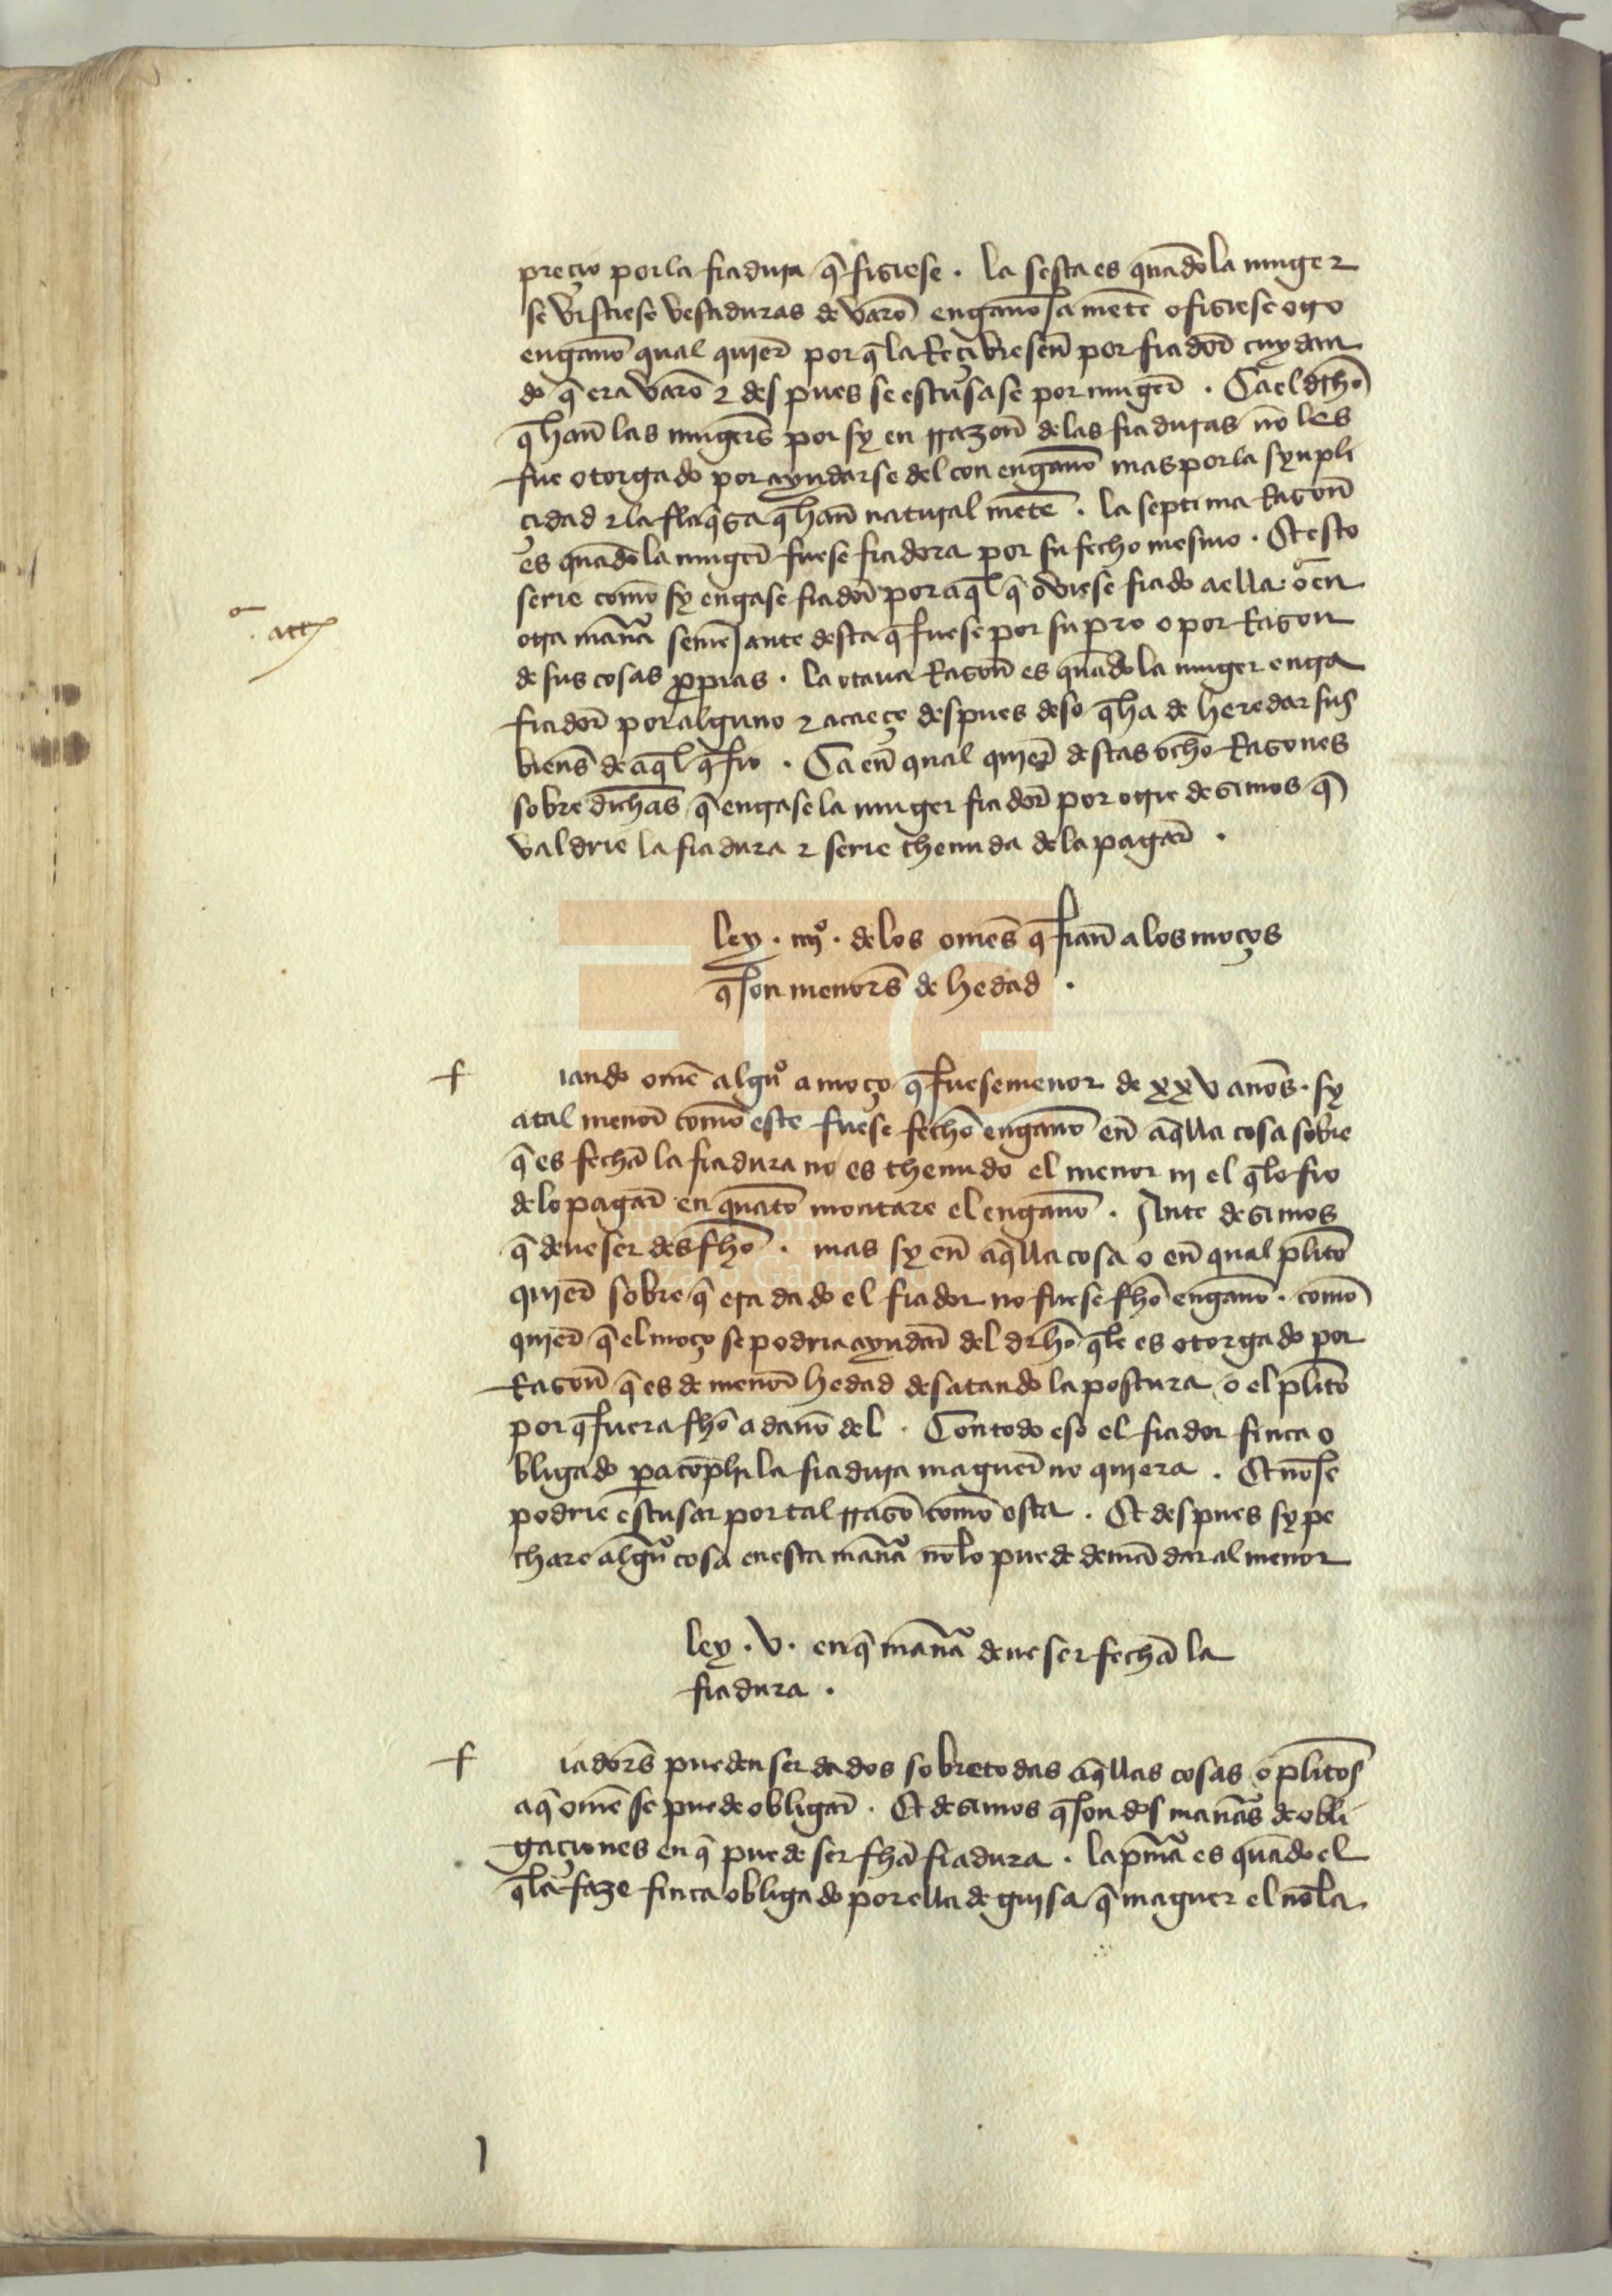 preçio por la fiadura q̃ fisiese . la sesta es quãdo la muger
se vistiese vestiduras de varõ engañosa mẽte o fisiese otro
engaño qual quier̃ por q̃ la Reçibiesen̄ por fiador̃ cuydan
do q̃ era varõ ⁊ des pues se escusase por muger̃ . Ca el dr̃cho
q̃ han̄ las mugers̃ por sy en rrazon̄ delas fiaduras nõ les
fue otorgado por ayudarse del con engaño mas por la synpli
çidad ⁊ la flaq̃sa q̃ han̄ natural mẽte . la septima Rason̄
es quãdo la muger̃ fuese fiadora por su fecho mesmo . Et esto
serie comõ sy entrase fiador̃ por aq̃l q̃ oviese fiado a ella o en
otra manã semejante desta q̃ fuese por su pro o por Rason
de sus cosas ꝓpias . la otaua Rason̄ es quãdo la muger entra
fiador̃ por alguno ⁊ acaeçe despues deso q̃ ha de heredar sus
biens̃ de aq̃l q̃ fio . Ca en̄ qual quier̃ destas ochõ Rasones
sobre dichas q̃ entrase la muger fiador̃ por otrie desimos q̃
valdrie la fiadura ⁊ serie thenuda de la pagar̃ .
o. att
ley . iiijº . de los omẽs q̃ fian̄ a los moços
q̃ son menors̃ de hedad .
f iando omẽ algũº a moço q̃ fuese menor de xxv años . sy
a tal menor̃ comõ este fuese fechõ engaño en̄ aq̃lla cosa sobre
q̃ es fechã la fiadura no es thenudo el menor nj el q̃ lo fio
de lo pagar̃ en quãto montare el engaño . Ante desimos
q̃ deue ser desfhõ . mas sy en̄ aq̃lla cosa o en̄ qual plito
quier̃ sobre q̃ era dado el fiador no fuese fhõ engaño . comõ
quier̃ q̃ el moço se podria ayudar̃ del drhõ q̃ le es otorgado por
Rason̄ q̃ es de menor̃ hedad desatando la postura o el plito
por q̃ fuera fhõ a daño del . Con todo eso el fiador finca o
bligado ꝑa cõplir la fiadura maguer̃ no quiera . Et nõ se
podrie escusar por tal rrasõ comõ esta . Et despues sy pe
chare algũª cosa en esta manãª nõ lo puede demãdar al menor
ley . v . en q̃ manãª deue ser fechã la
fiadura .
f iadors̃ pueden ser dados sobre todas aq̃llas cosas o plitos
a q̃ omẽ se puede obligar̃ . Et desimos q̃ son dos manãs de obli
gaçiones en q̃ puede ser fhã fiadura . la pmãª es quãdo el
q̃ la faze finca obligado por ella de guisa q̃ maguer el nõ la